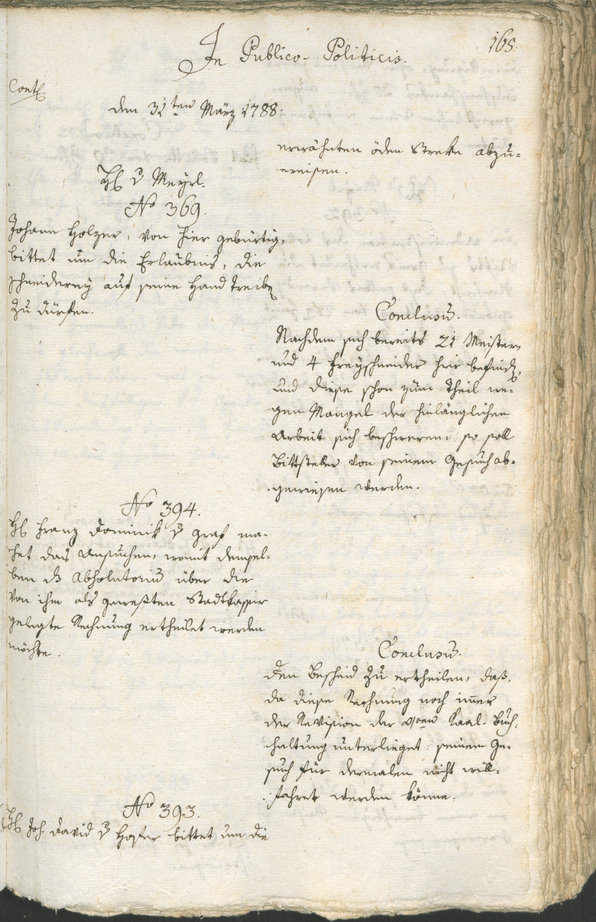 165.
In Publico-Politicis.
Cont.
den 31ten März 1788.
erwähnten öden Strecke abzu-
weisen.
H v Meyrl.
No 369.
Johann Holzer, von hier gebürtig,
bittet um die Erlaubnis, die
Schneiderey auf seine Hand treiben
zu dürfen.
Conclusum.
Nachdem sich bereits 21 Meister
und 4 Freyschneider hier befinden,
und diese schon zum Theil we-
gen Mangel der hinlänglichen
Arbeit sich beschweren: so soll
Bittsteller von seinem Gesuch ab-
gewiesen werden.
No 394.
H Franz Dominik v Graf ma-
chet das Ansuchen, womit demsel-
ben das Absolutorium über die
von ihm als gewesten Stadtkassier
gelegte Rechnung ertheilet werden
möchte.
Conclusum.
Den Bescheid zu ertheilen, daß,
da diese Rechnung noch immer
der Revision der Buch-
haltung unterlieget: seinem Ge-
such für dermalen nicht will-
fahret werden könne.
No 393.
H Joh. David v Hofer bittet um die